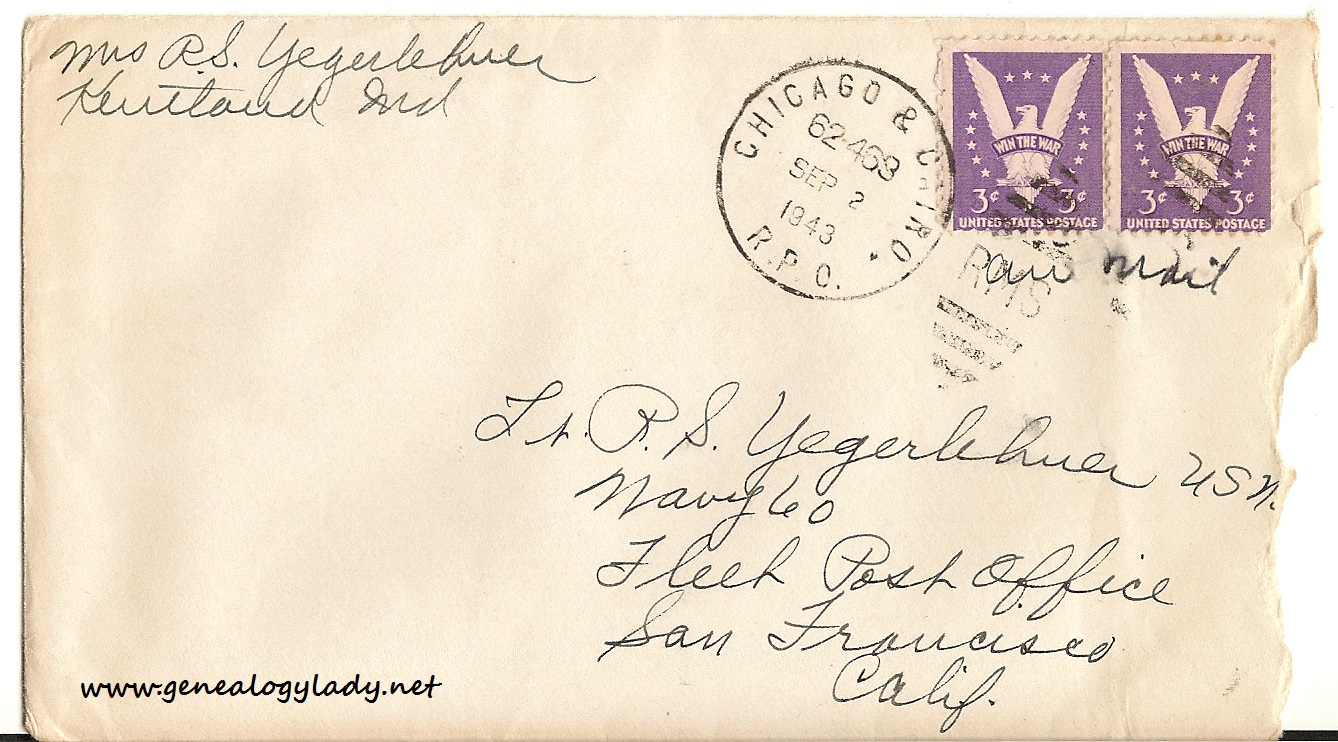 Mrs R.S. Yegerlehner
Kentland Ind
CHICAGO & CAIRO
62-463
SEP 2
1943
R.P.O.
RMS
WIN THE WAR
3¢ 3¢
UNITED STATES POSTAGE
WIN THE WAR
3¢ 3¢
UNITED STATES POSTAGE
air mail
Lt. R. S. Yegerlehner USN.
Navy 60
Fleet Post Office
San Francisco
Calif.
www.genealogylady.net